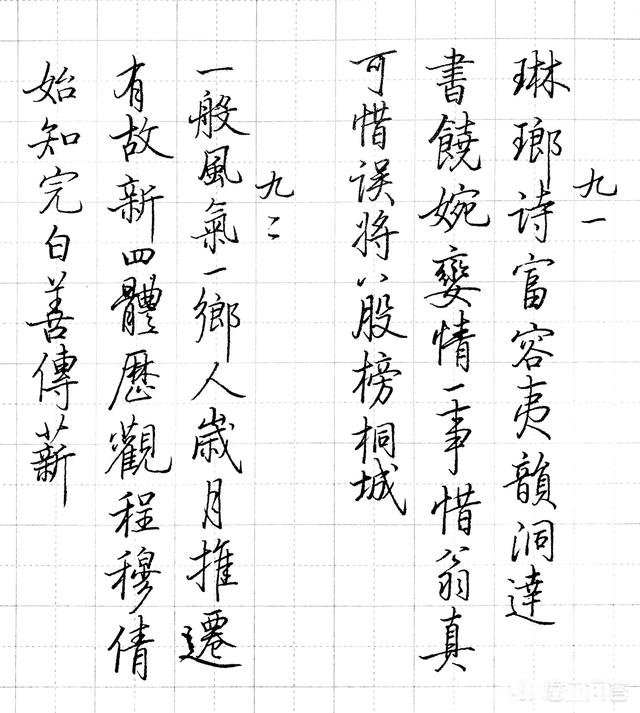 九一
琳瑯诗富容夷韻洞達
書饒婉孌情一事惜翁真
可惜误将八股榜桐城
九二
一般風氣一鄉人歲月推遷
有故新四體歷觀程穆倩
始知完白善傳薪
悟空问答